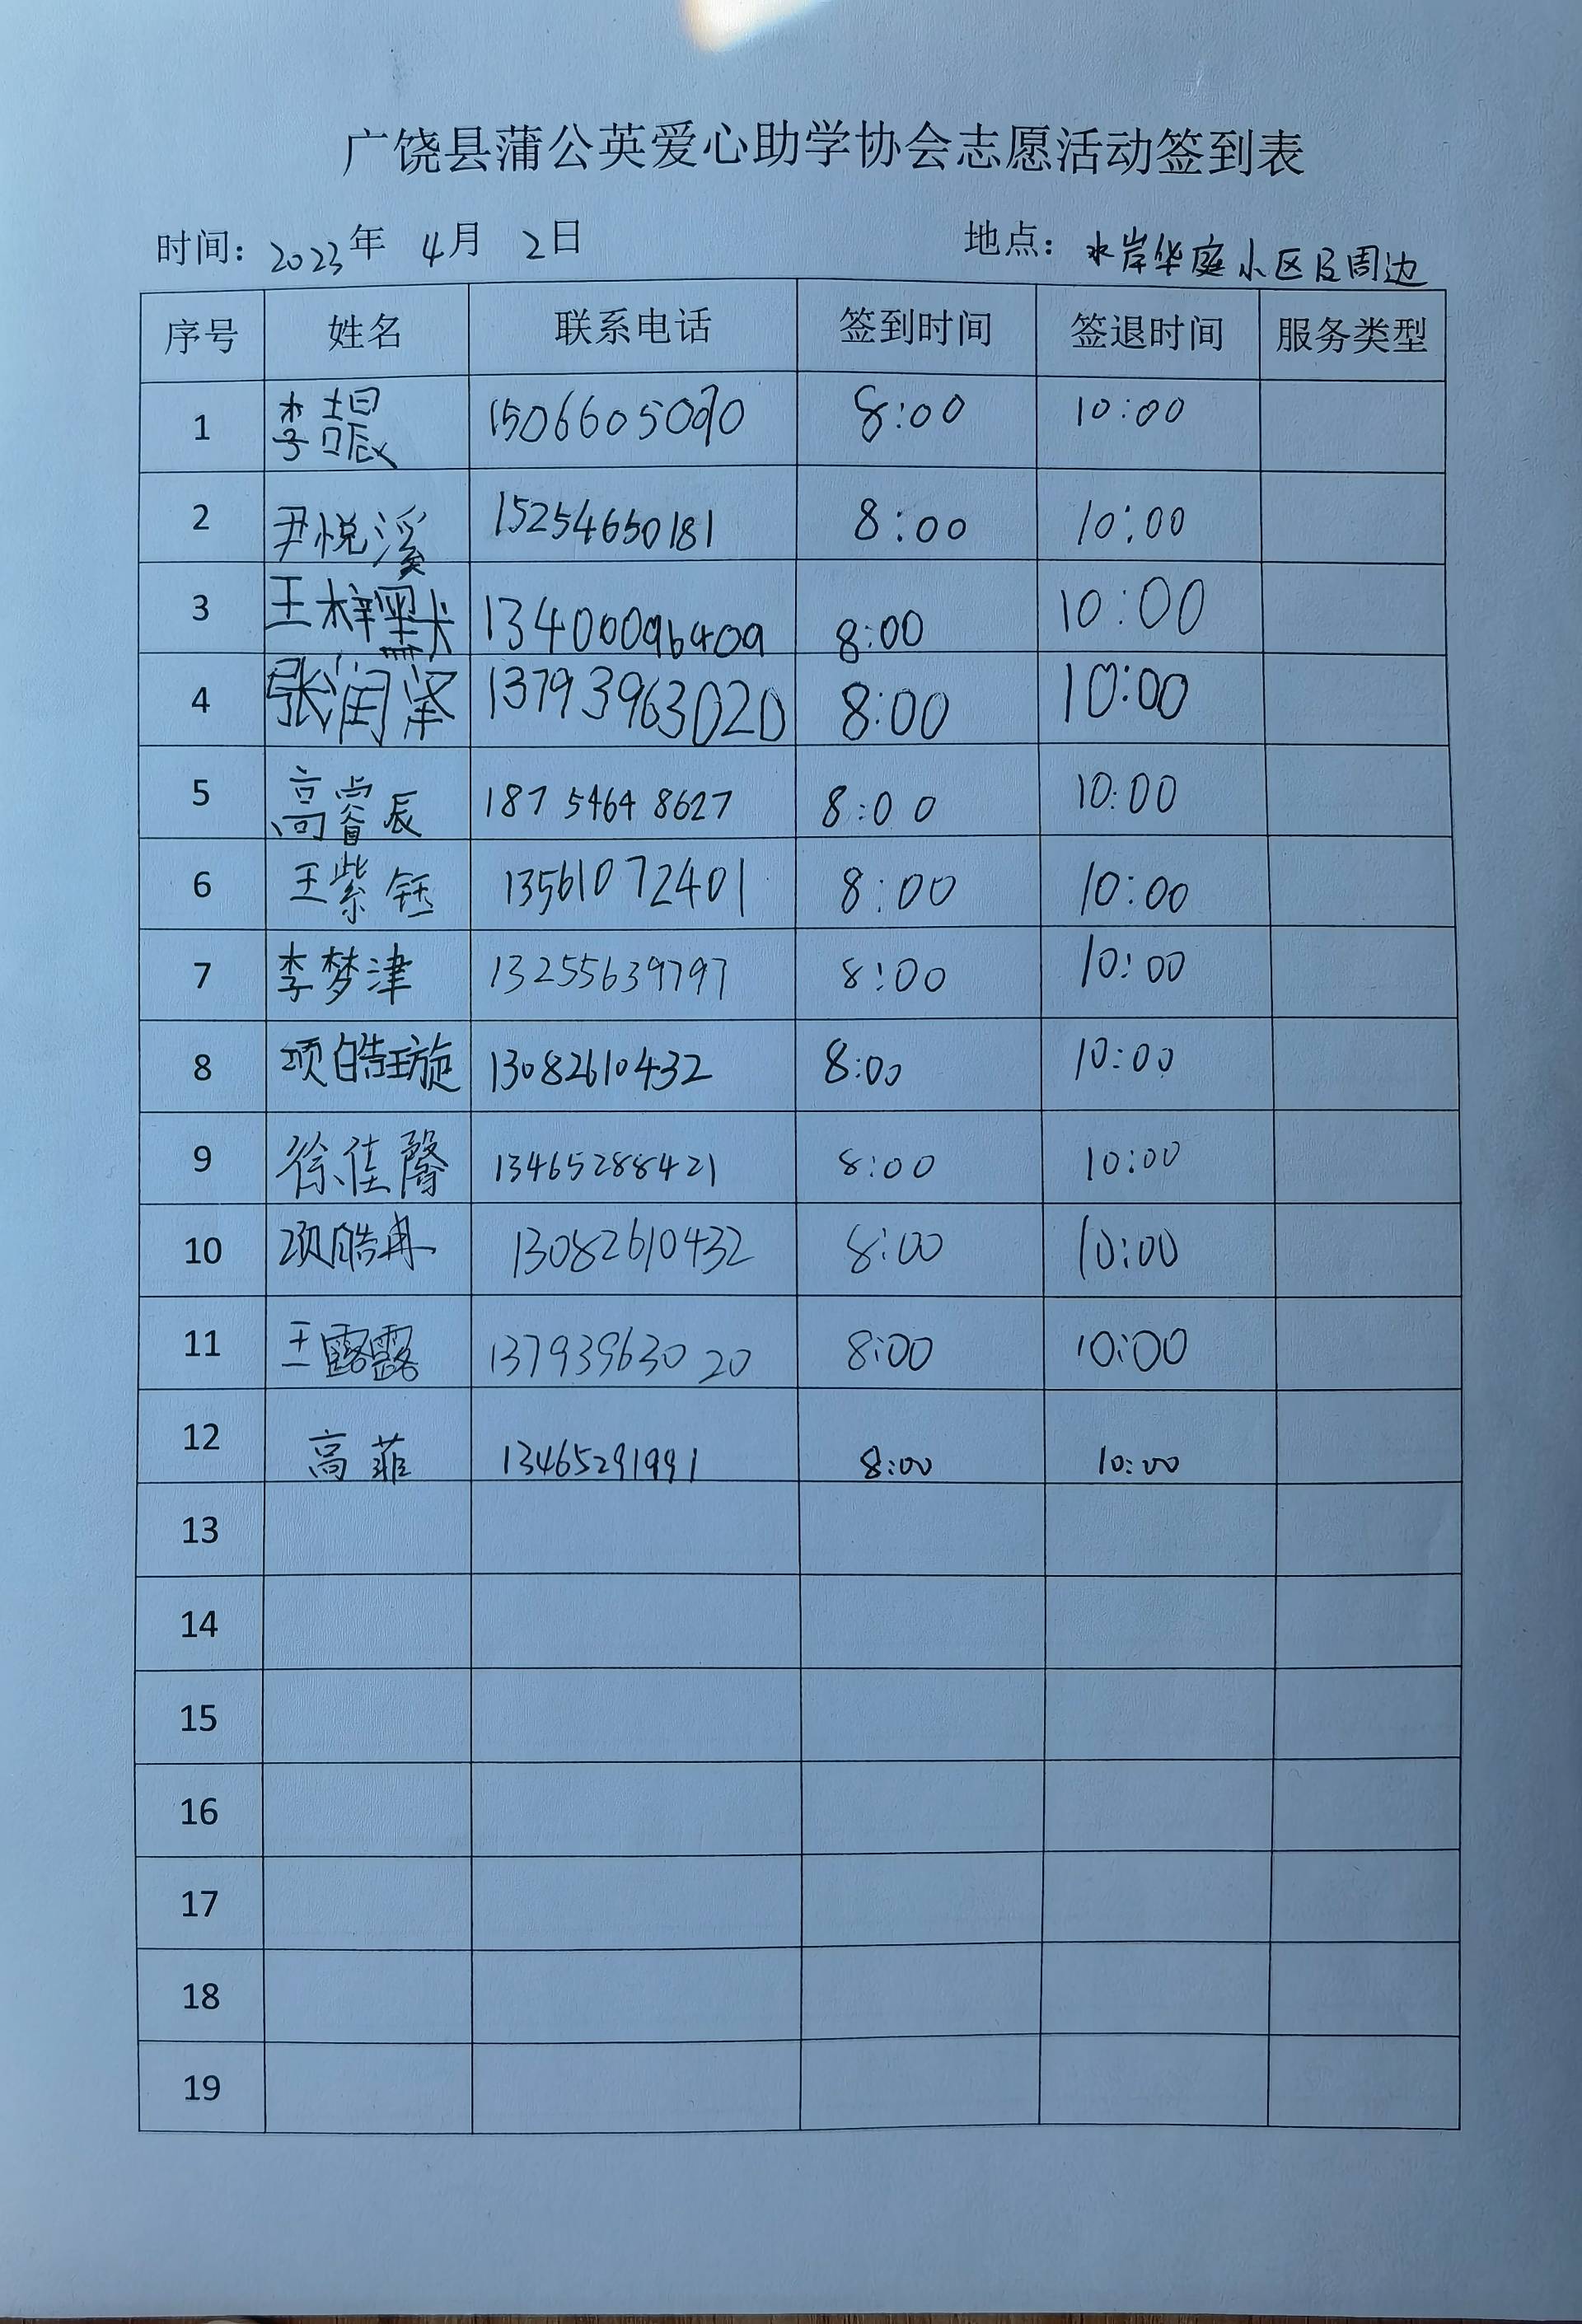 广饶县蒲公英爱心助学协会志愿活动签到表
时间：2023年 4月 2日 地点：水岸华庭小区及周边
序号 姓名 联系电话 签到时间 签退时间 服务类型
1 李 8:00 10:00
2 尹悦溪 15254650181 8:00 10:00
3 王梓默 13400096409 8:00 10:00
4 张润泽 13793963020 8:00 10:00
5 高睿辰 187 5464 8627 8:00 10:00
6 王紫钰 13561072401 8:00 10:00
7 李梦津 13255639797 8:00 10:00
8 项皓璇 13082610432 8:00 10:00
9 徐佳馨 13465288421 8:00 10:00
10 项皓冉 13082610432 8:00 10:00
11 王露露 13793963020 8:00 10:00
12 高菲 13465291991 8:00 10:00
13
14
15
16
17
18
19